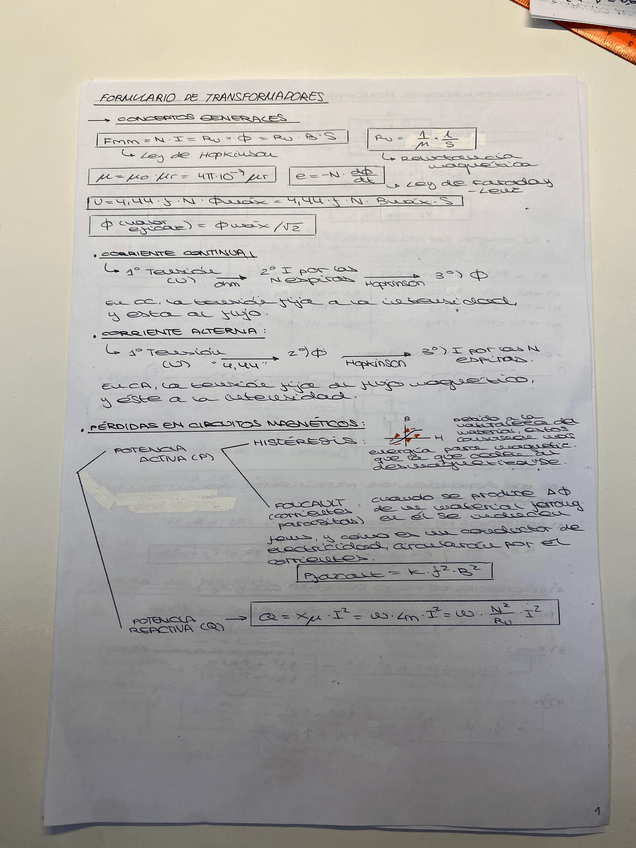 FORMULARIO DE TRANSFORMADORES
→ CONCEPTOS GENERALES
Fmm = N · I = Ru · Φ = Ru · B · S
Ru = 1/μ · l/S
↳ Ley de Hopkinson
↳ Reluctancia magnética
μ = μo · μr = 4π·10⁻⁷ μr
e = -N · dΦ/dt
↳ Ley de Faraday - Lenz
U = 4,44 · f · N · Φmáx = 4,44 · f · N · Bmáx · S
Φ (valor eficaz) = Φmáx / √2
· CORRIENTE CONTINUA:
↳ 1º Tensión (U) → Ohm 2º I por las N espiras → Hopkinson 3º) Φ
En CC, la tensión fija a la intensidad,
y esta al flujo.
· CORRIENTE ALTERNA:
↳ 1º Tensión (U) → "4,44" 2º) Φ → Hopkinson 3º) I por las N espiras.
En CA, la tensión fija al flujo magnético,
y éste a la intensidad.
· PÉRDIDAS EN CIRCUITOS MAGNÉTICOS:
POTENCIA ACTIVA (P)
HISTÉRESIS:
B
H
Debido a la
naturaleza del
material, estos
energía para
que la que
FOUCAULT (corrientes parásitas)
cuando se produce ΔΦ
de un material ferromag
en él se inducirán
fems, y como es un conductor de
electricidad, aparecerán por él
corrientes.
PFoucault = K · f² · B²
POTENCIA REACTIVA (Q) → Q = Xμ · I² = ω · Lm · I² = ω · N²/Ru · I²
1